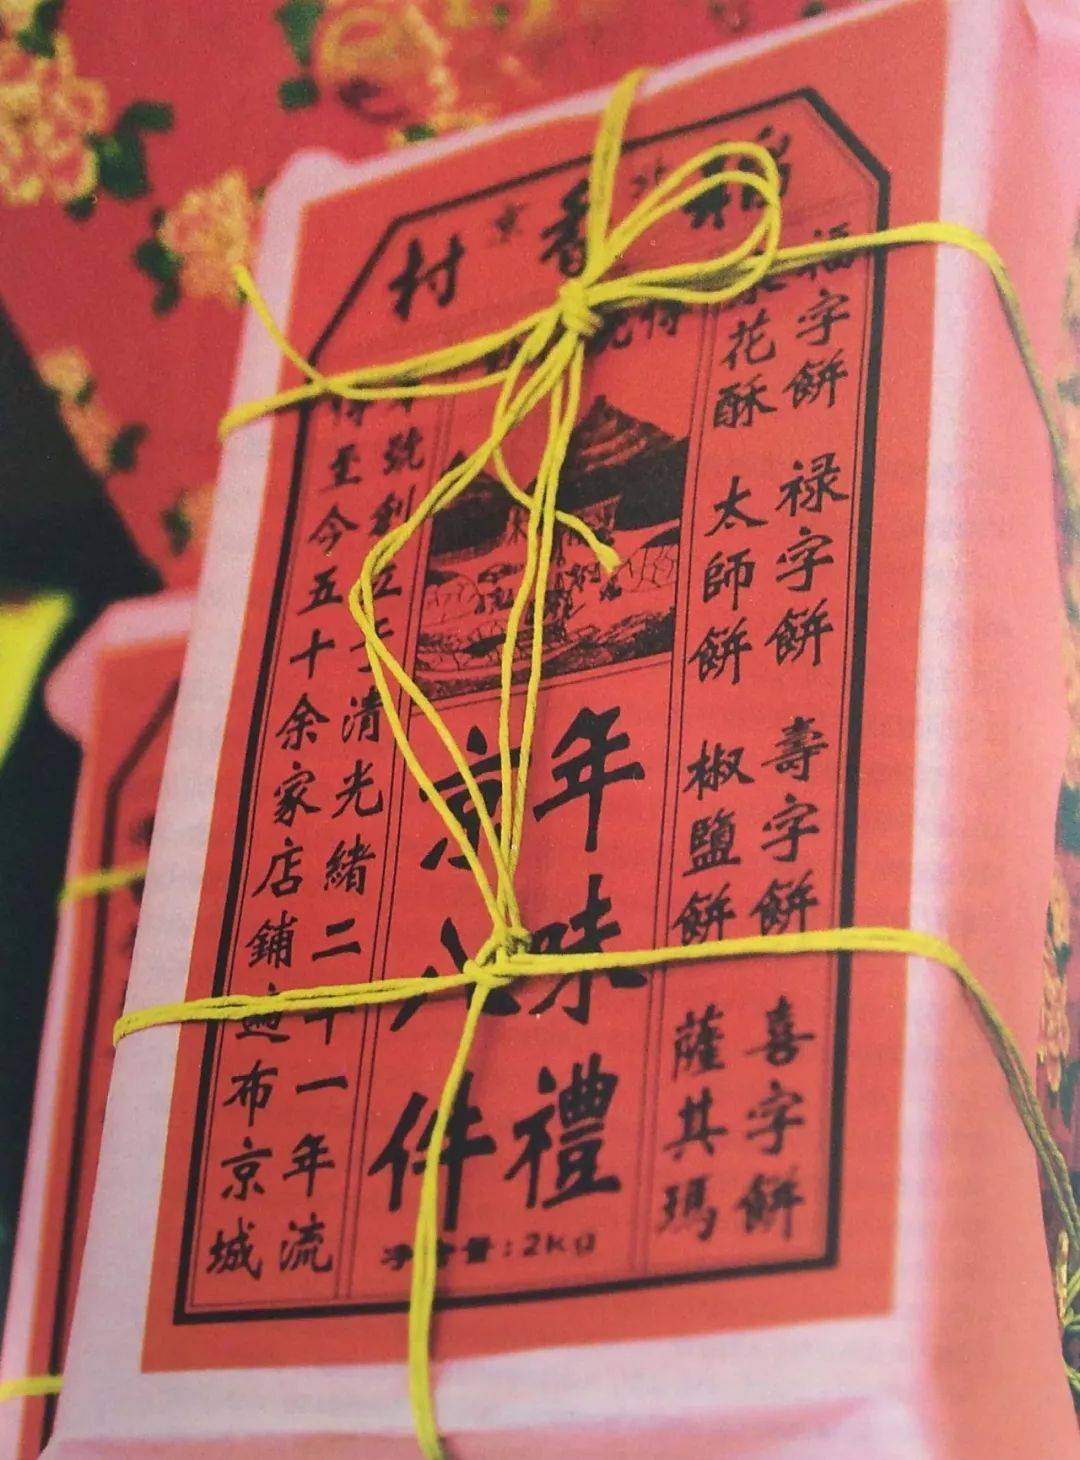 稻香村
北京
福字餅 禄字餅 壽字餅 喜字餅
花酥 太師餅 椒鹽餅 薩其瑪
年味禮
京八件
净含量:2kg
號創立于清光緒二十一年流
至今五十余家店鋪遍布京城